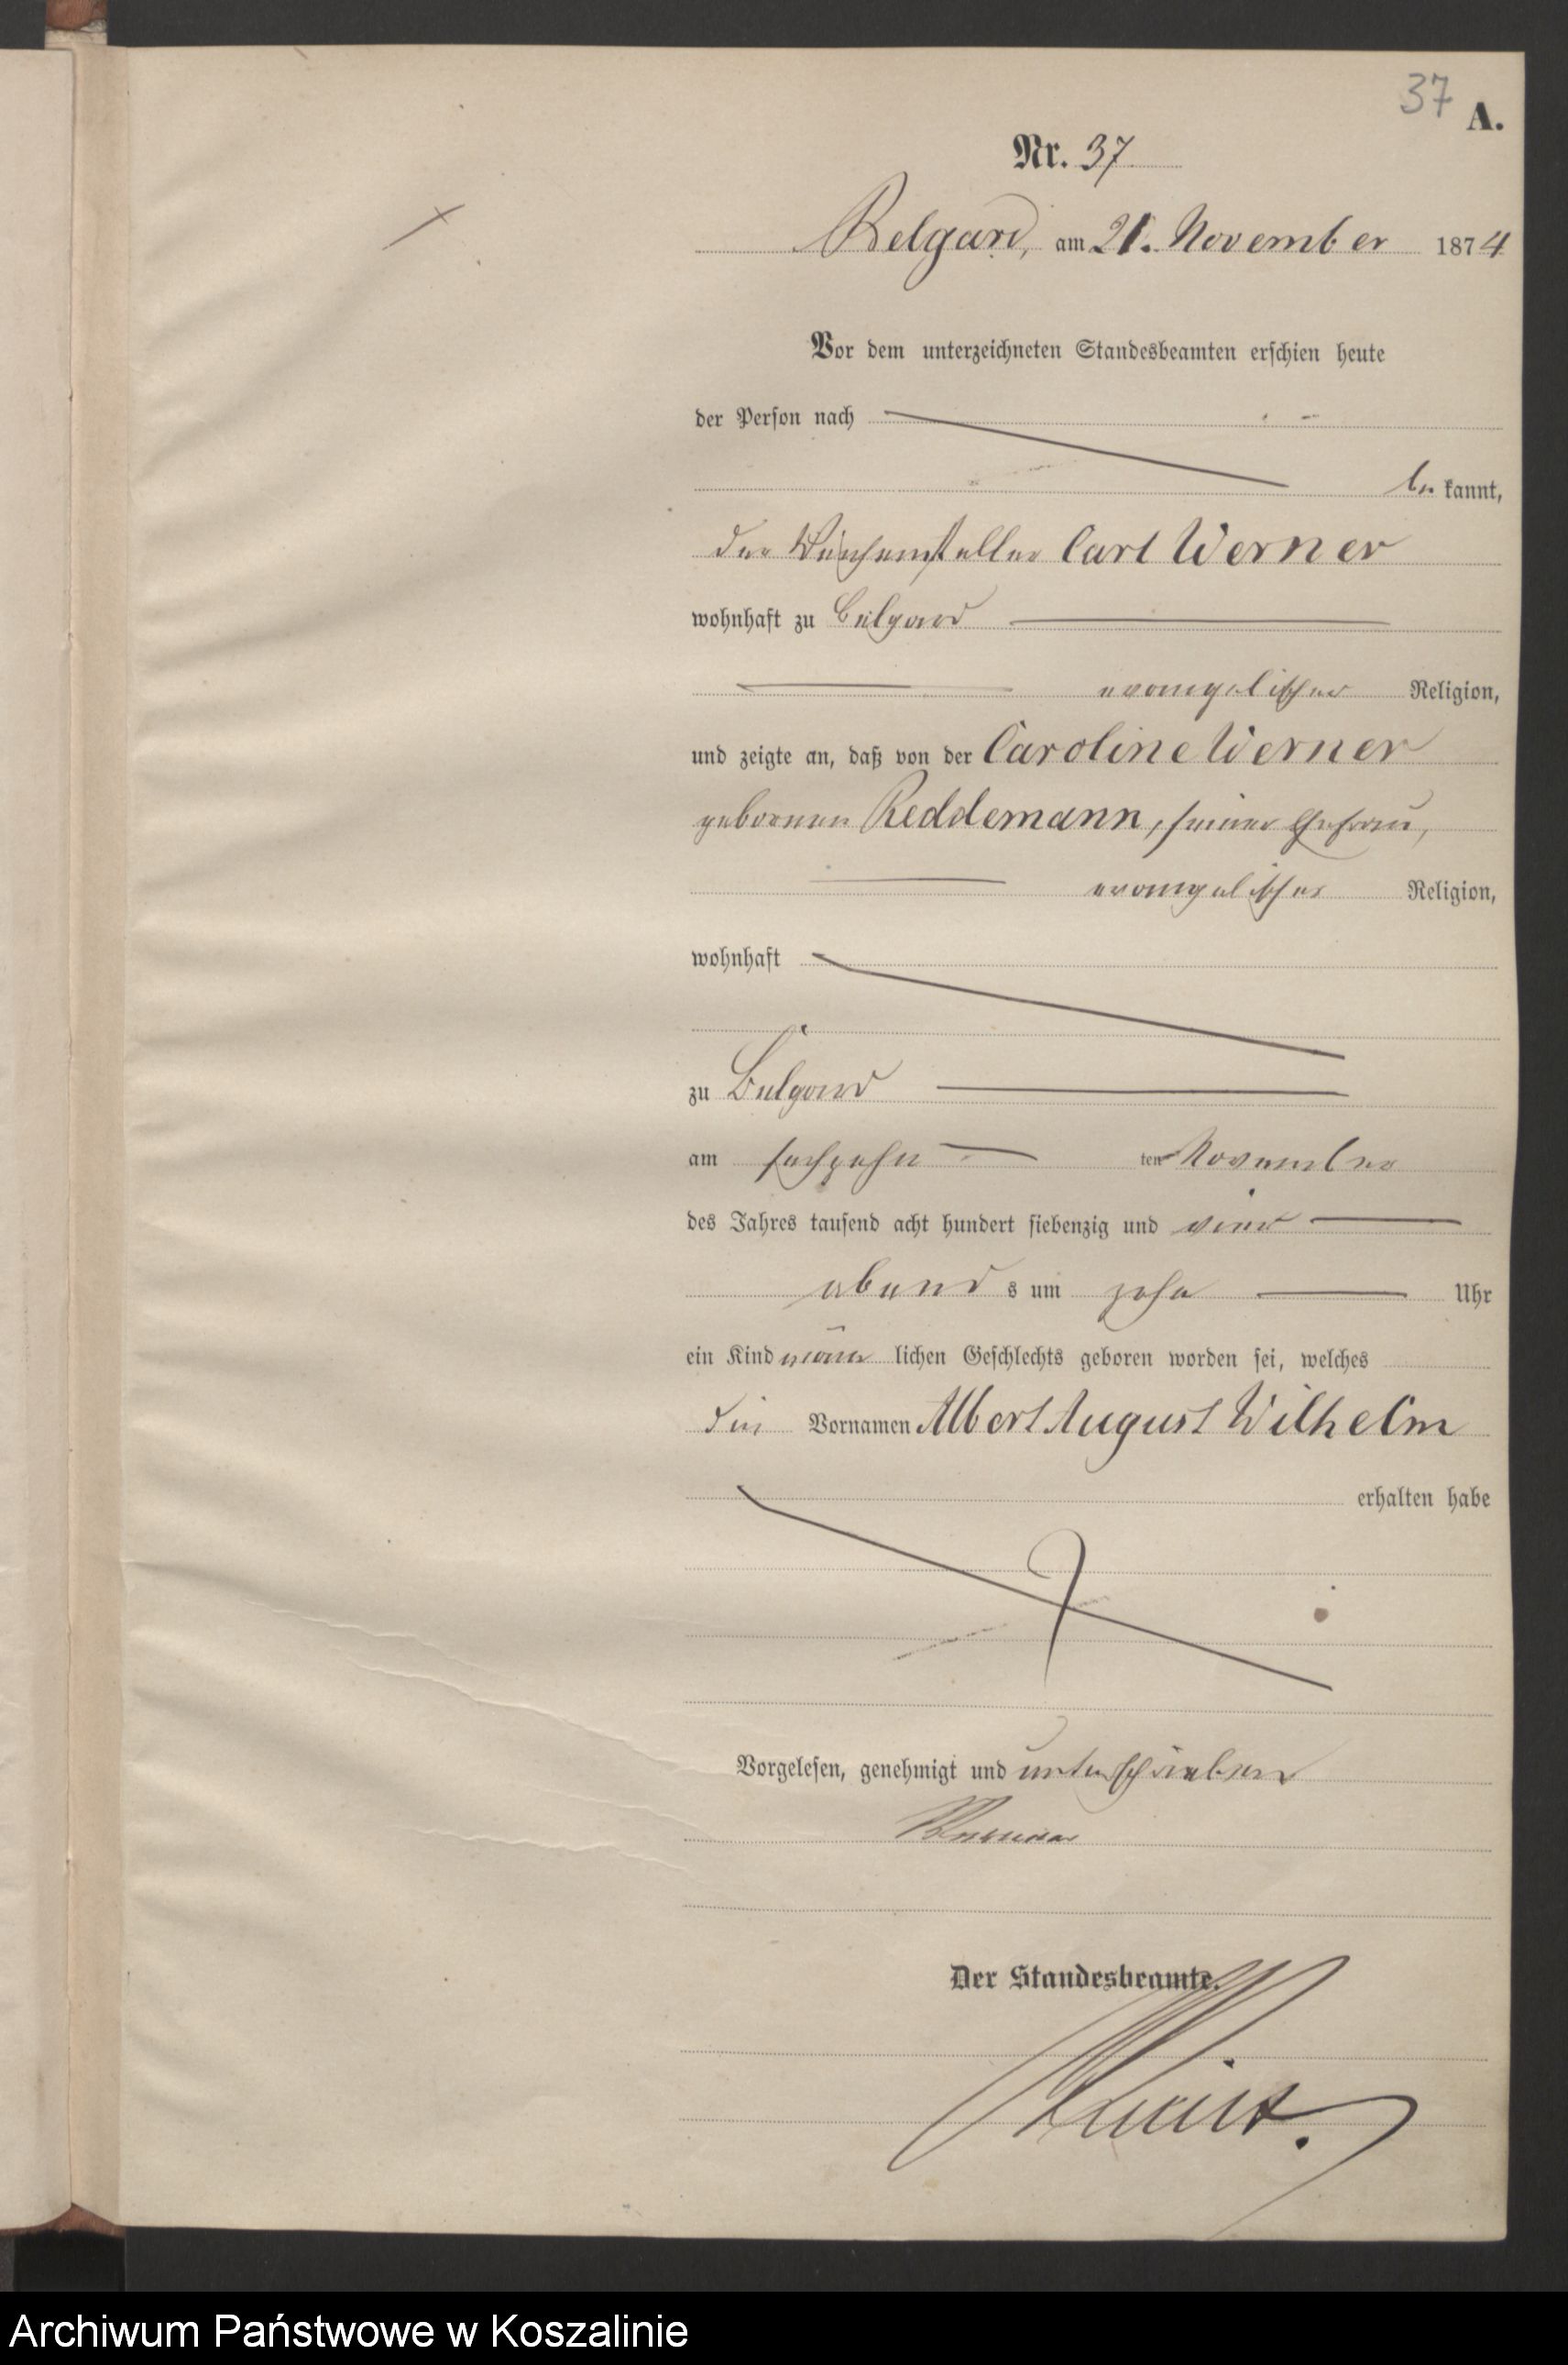 37
A.
Nr. 37.
Belgard, am 21. November 1874
Vor dem unterzeichneten Standesbeamten erschien heute
der Person nach
be kannt,
der Weichensteller Carl Werner
wohnhaft zu Belgard
evangelischer Religion,
und zeigte an, daß von der Caroline Werner
geborenen Reddemann, seiner Ehefrau,
evangelischer Religion,
wohnhaft
zu Belgard
am sechzehn ten November
des Jahres tausend acht hundert siebenzig und vier
abend s um zehn Uhr
ein Kind männ lichen Geschlechts geboren worden sei, welches
die Vornamen Albert August Wilhelm
erhalten habe
Vorgelesen, genehmigt und unterschrieben
Werner
Der Standesbeamte.
Archiwum Państwowe w Koszalinie